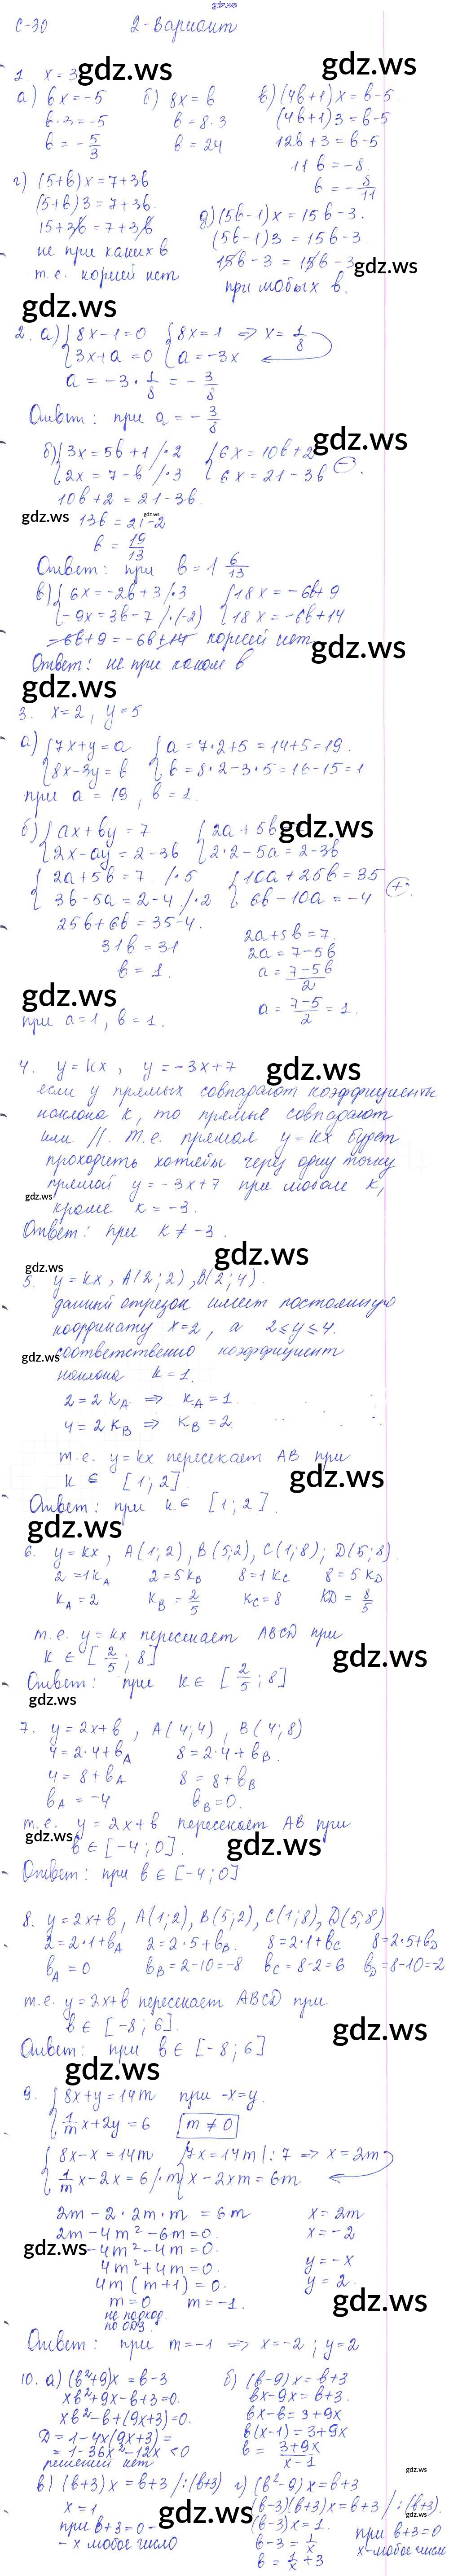 gdz.ws
С-30 2-Вариант
1. x = 3
gdz.ws
gdz.ws
а) bx = -5
b·3 = -5
b = -5/3
б) 8x = b
b = 8·3
b = 24
в) (4b+1)x = b-5
(4b+1)3 = b-5
12b+3 = b-5
11b = -8
b = -8/11
г) (5+b)x = 7+3b
(5+b)3 = 7+3b
15+3b = 7+3b
не при каких b
т.е. корней нет
д) (5b-1)x = 15b-3.
(5b-1)3 = 15b-3
15b-3 = 15b-3
gdz.ws
при любых b.
gdz.ws
2. а) {8x-1=0 {8x=1 => x = 1/8
{3x+a=0 {a=-3x
a = -3·1/8 = -3/8
Ответ: при a = -3/8
gdz.ws
б) {3x = 5b+1 /·2 {6x = 10b+2
{2x = 7-b /·3 {6x = 21-3b
10b+2 = 21-3b
gdz.ws
13b = 21-2
gdz.ws
b = 19/13
Ответ: при b = 1 6/13
в) {6x = -2b+3 /·3 {18x = -6b+9
{-9x = 3b-7 /·(-2) {18x = -6b+14
-6b+9 = -6b+14 корней нет
gdz.ws
Ответ: не при каком b
gdz.ws
3. x=2, y=5
а) {7x+y=a {a=7·2+5=14+5=19.
{8x-3y=b {b=8·2-3·5=16-15=1
при a = 19, b = 1.
gdz.ws
б) {ax+by = 7 {2a+5b = 7
{2x-ay = 2-3b {2·2-5a = 2-3b
{2a+5b = 7 /·5 {10a+25b = 35
{3b-5a = 2-4 /·2 {6b-10a = -4
25b+6b = 35-4.
31b = 31
b = 1.
2a+5b = 7.
2a = 7-5b
a = 7-5b/2
a = 7-5/2 = 1.
gdz.ws
при a=1, b=1.
4. y = kx, y = -3x+7
gdz.ws
если у прямых совпадают коэффициенты
наклона k, то прямые совпадают
или //. т.е. прямая y=kx будет
проходить хотябы через одну точку
gdz.ws
прямой y=-3x+7 при любом k,
кроме k = -3.
Ответ: при k ≠ -3.
gdz.ws
gdz.ws
5. y=kx, A(2;2), B(2;4).
данный отрезок имеет постоянную
координату x=2, а 2≤y≤4.
gdz.ws
соответственно коэффициент
наклона k=1.
2 = 2kA => kA = 1.
4 = 2kB => kB = 2.
т.е. y=kx пересекает AB при
k ∈ [1;2].
gdz.ws
Ответ: при k ∈ [1;2].
gdz.ws
6. y=kx, A(1;2), B(5;2), C(1;8); D(5;8).
2 = 1kA 2 = 5kB 8 = 1kC 8 = 5kD
kA = 2 kB = 2/5 kC = 8 kD = 8/5
т.е. y = kx пересекает ABCD при
gdz.ws
k ∈ [2/5; 8]
Ответ: при k ∈ [2/5; 8]
gdz.ws
7. y = 2x+b, A(4;4), B(4;8)
4 = 2·4+bA 8 = 2·4+bB.
4 = 8+bA 8 = 8+bB
bA = -4 bB = 0.
т.е. y = 2x+b пересекает AB при
gdz.ws
b ∈ [-4;0].
gdz.ws
Ответ: при b ∈ [-4;0]
8. y=2x+b, A(1;2), B(5;2), C(1;8), D(5;8)
2=2·1+bA 2=2·5+bB. 8=2·1+bC 8=2·5+bD
bA = 0 bB=2-10=-8 bC=8-2=6 bD=8-10=-2
т.е. y=2x+b пересекает ABCD при
b ∈ [-8;6].
gdz.ws
Ответ: при b ∈ [-8;6]
gdz.ws
9. {8x+y=14m при -x=y.
{1/m x+2y = 6 m ≠ 0
{8x-x = 14m {7x = 14m |:7 => x = 2m
{1/m x-2x = 6 /·m {x-2xm = 6m
2m-2·2m·m = 6m
2m-4m²-6m=0.
gdz.ws
-4m²-4m=0.
4m²+4m=0.
4m(m+1)=0.
m=0 m=-1.
не подход.
по ОДЗ.
x = 2m
x = -2
y = -x
y = 2
gdz.ws
Ответ: при m=-1 => x=-2; y=2
10. а) (b²+9)x = b-3
xb²+9x-b+3=0.
xb²-b+(9x+3)=0.
D = 1-4x(9x+3) =
= 1-36x²-12x < 0
решений нет
б) (b-9)x = b+3
bx-9x = b+3.
bx-b = 3+9x
b(x-1) = 3+9x
b = 3+9x/x-1
gdz.ws
в) (b+3)x = b+3 /:(b+3)
x = 1
gdz.ws
при b+3=0 -
- x любое число
г) (b²-9)x = b+3
(b-3)(b+3)x = b+3 /:(b+3).
gdz.ws
(b-3)x = 1.
b-3 = 1/x
b = 1/x + 3
при b+3=0
x-любое число